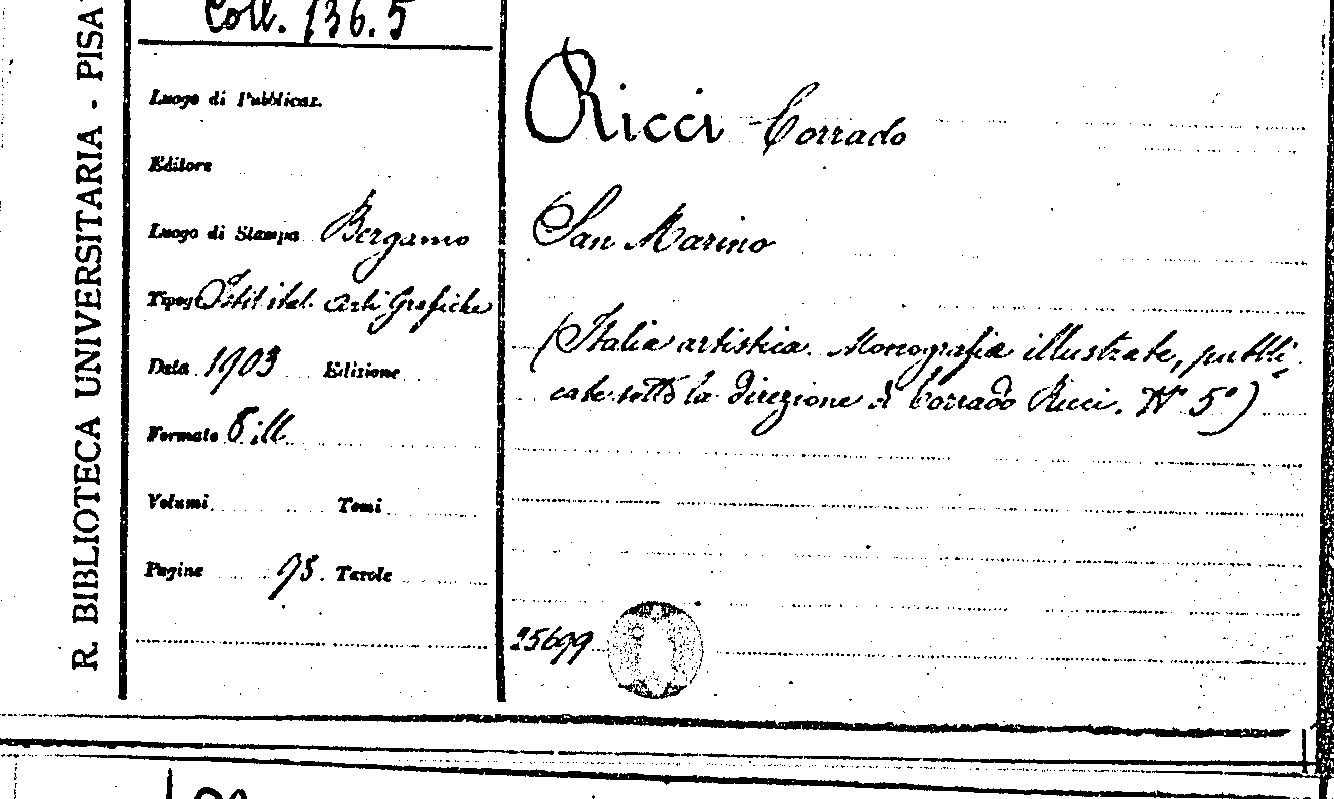 R. BIBLIOTECA UNIVERSITARIA - PISA
Coll. 136.5
Luogo di Pubblicaz.
Editore
Luogo di Stampa Bergamo
Tipog. Istit ital. Arti Grafiche
Data 1903 Edizione
Formato 8° ill.
Volumi Tomi
Pagine 95. Tavole
Ricci - Corrado
San Marino
(Italia artistica. Monografie illustrate, pubbli-
cate sotto la direzione di Corrado Ricci. N° 5°)
25699